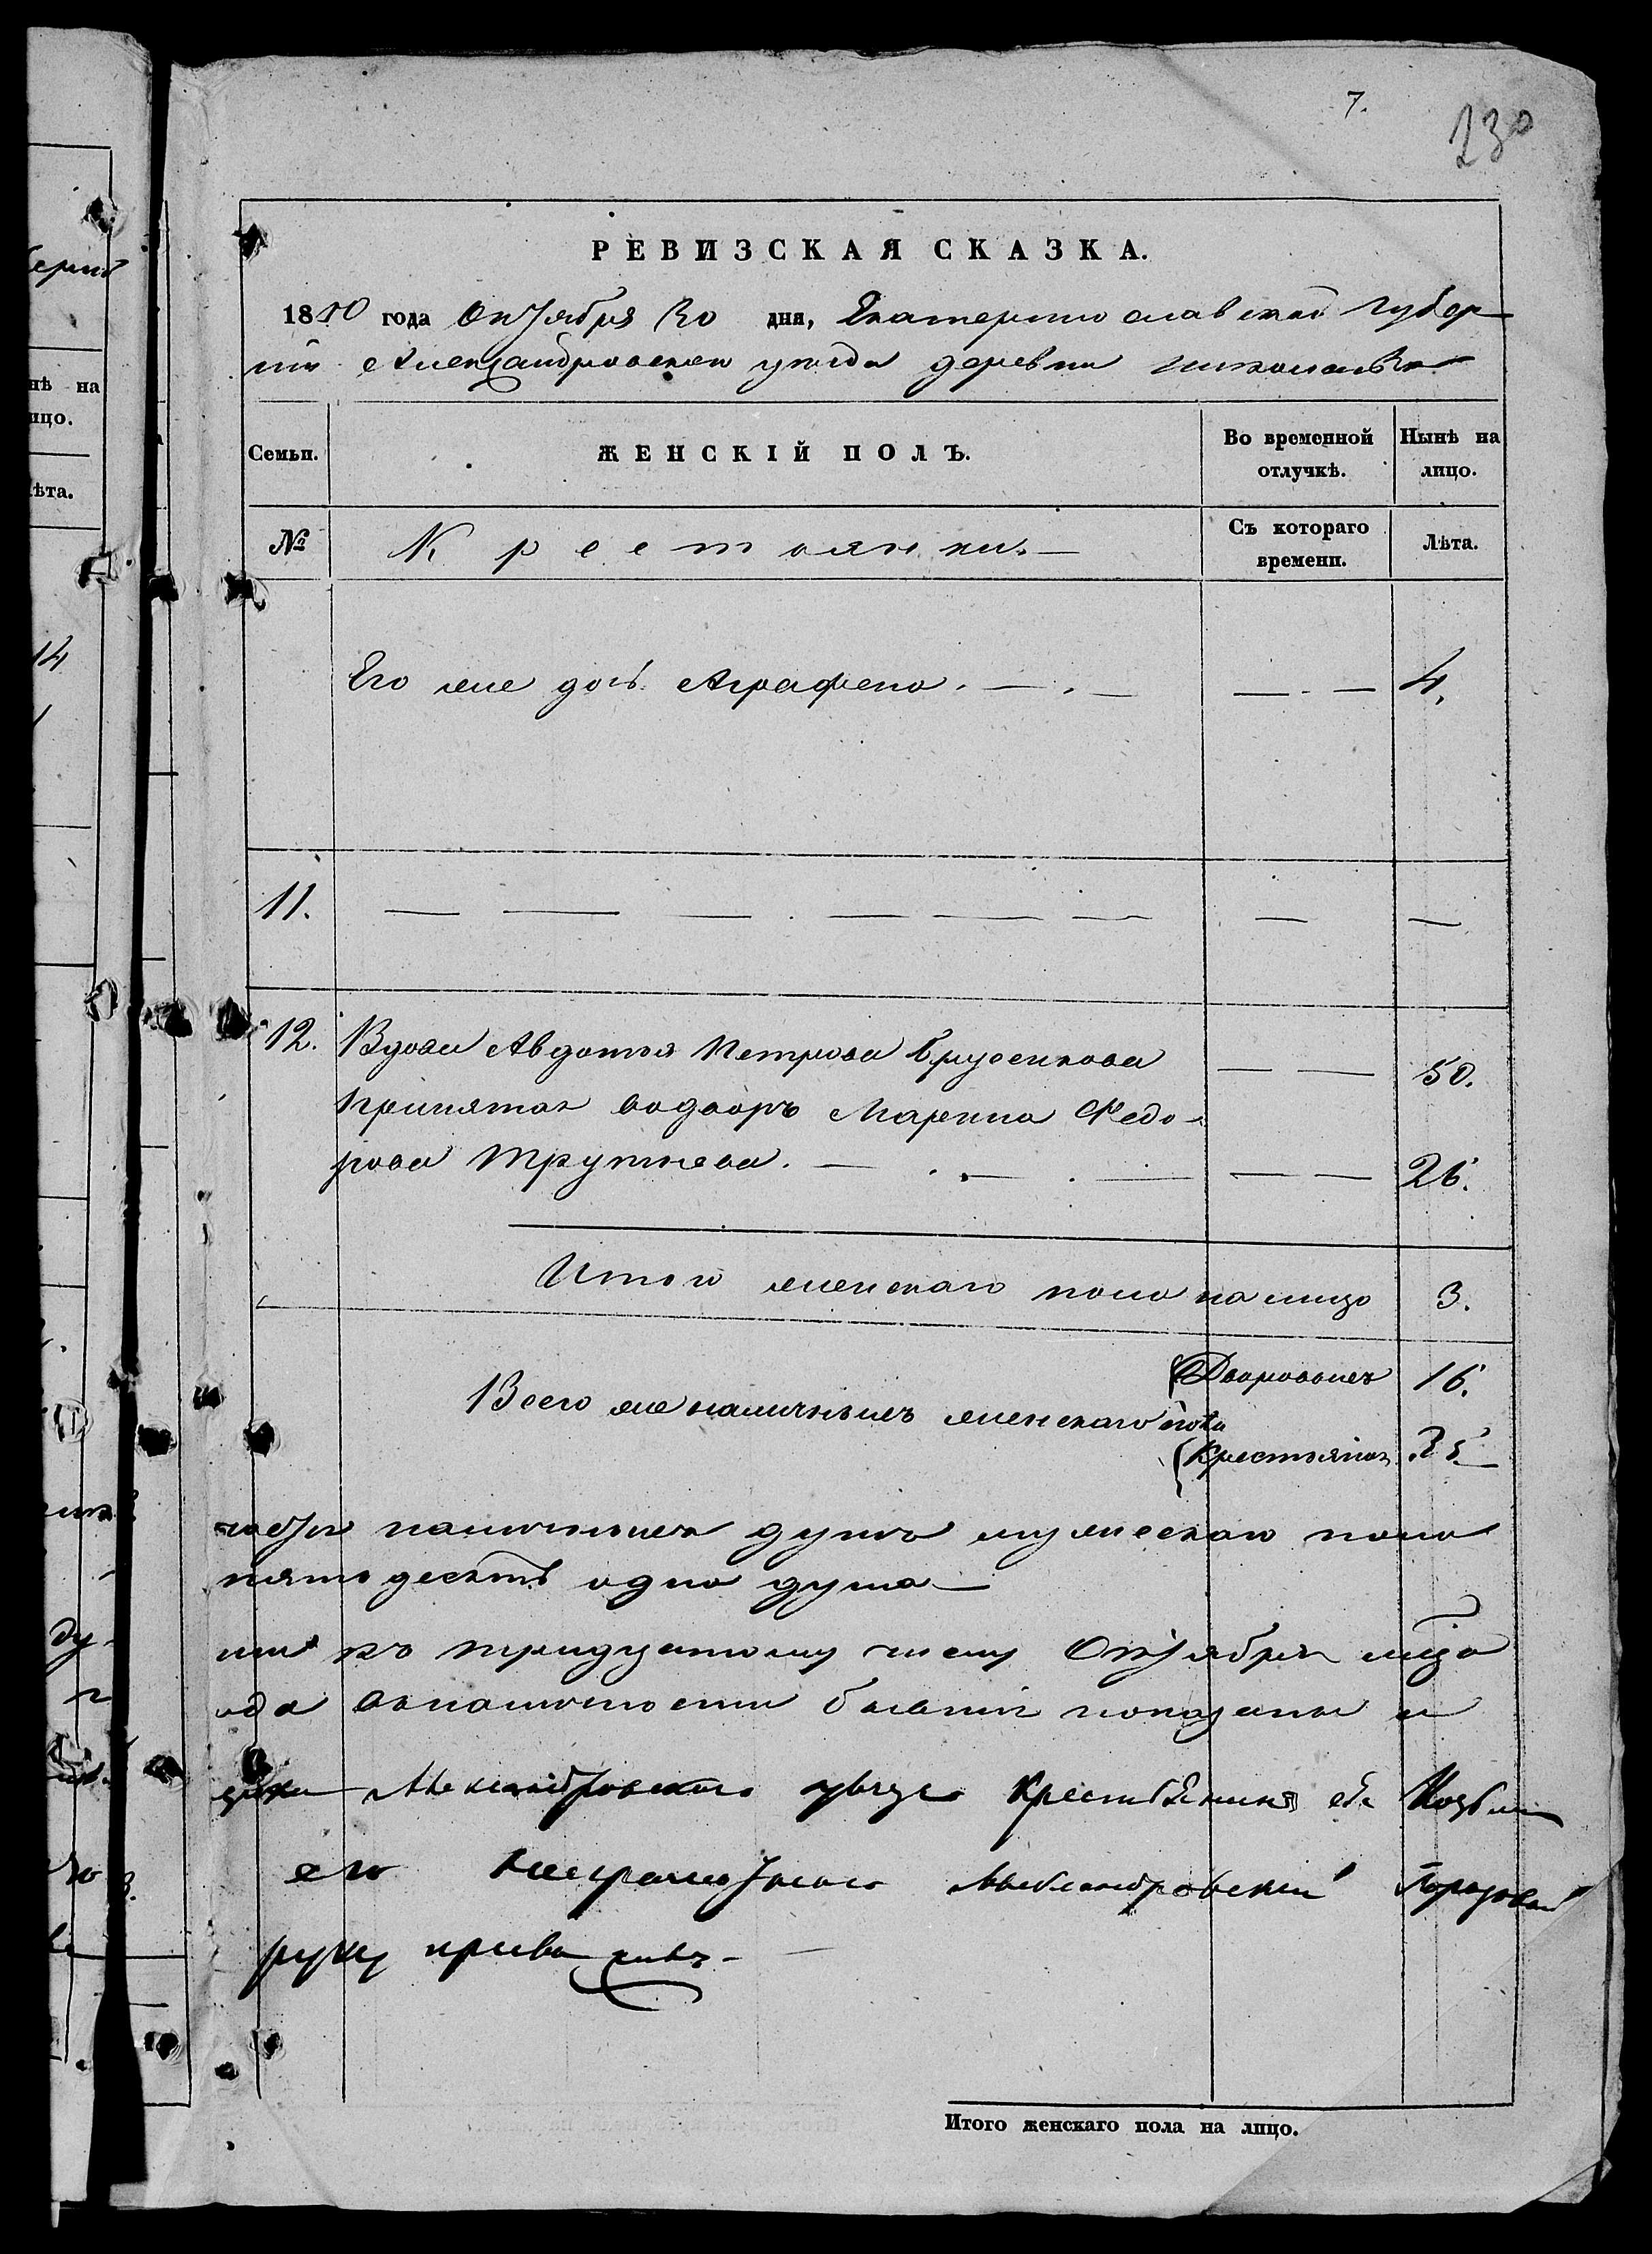 7.
230
РЕВИЗСКАЯ СКАЗКА.
1850 года Октября 30 дня, Екатеринославской губер
ніи Александровского уезда деревни Николаевка
Семьи.
ЖЕНСКІЙ ПОЛЪ.
Во временной отлучкѣ.
Нынѣ на лицо.
№
Крестьянки
Съ котораго времени.
Лѣта.
Его же дочь Аграфена. 4.
11.
12. Вдова Авдотья Петрова Брусенкова 50.
Принятая водворъ Марина Федо-
рова Трутнева. 26.
Итого женскаго пола на лицо 3.
Всего же наличныхъ женскаго пола
Дворовыхъ 16.
Крестьянок
наличныхъ душъ мужескаго пола
пятьдесятъ одна душа
къ тридцатому числу Октября
вналичности бывшіе показаны и
Александровского уезда Крестьянина
его неграмотного Александровский Городовой
руку приложилъ
Итого женскаго пола на лицо.
нѣ на
ицо.
ѣта.
14